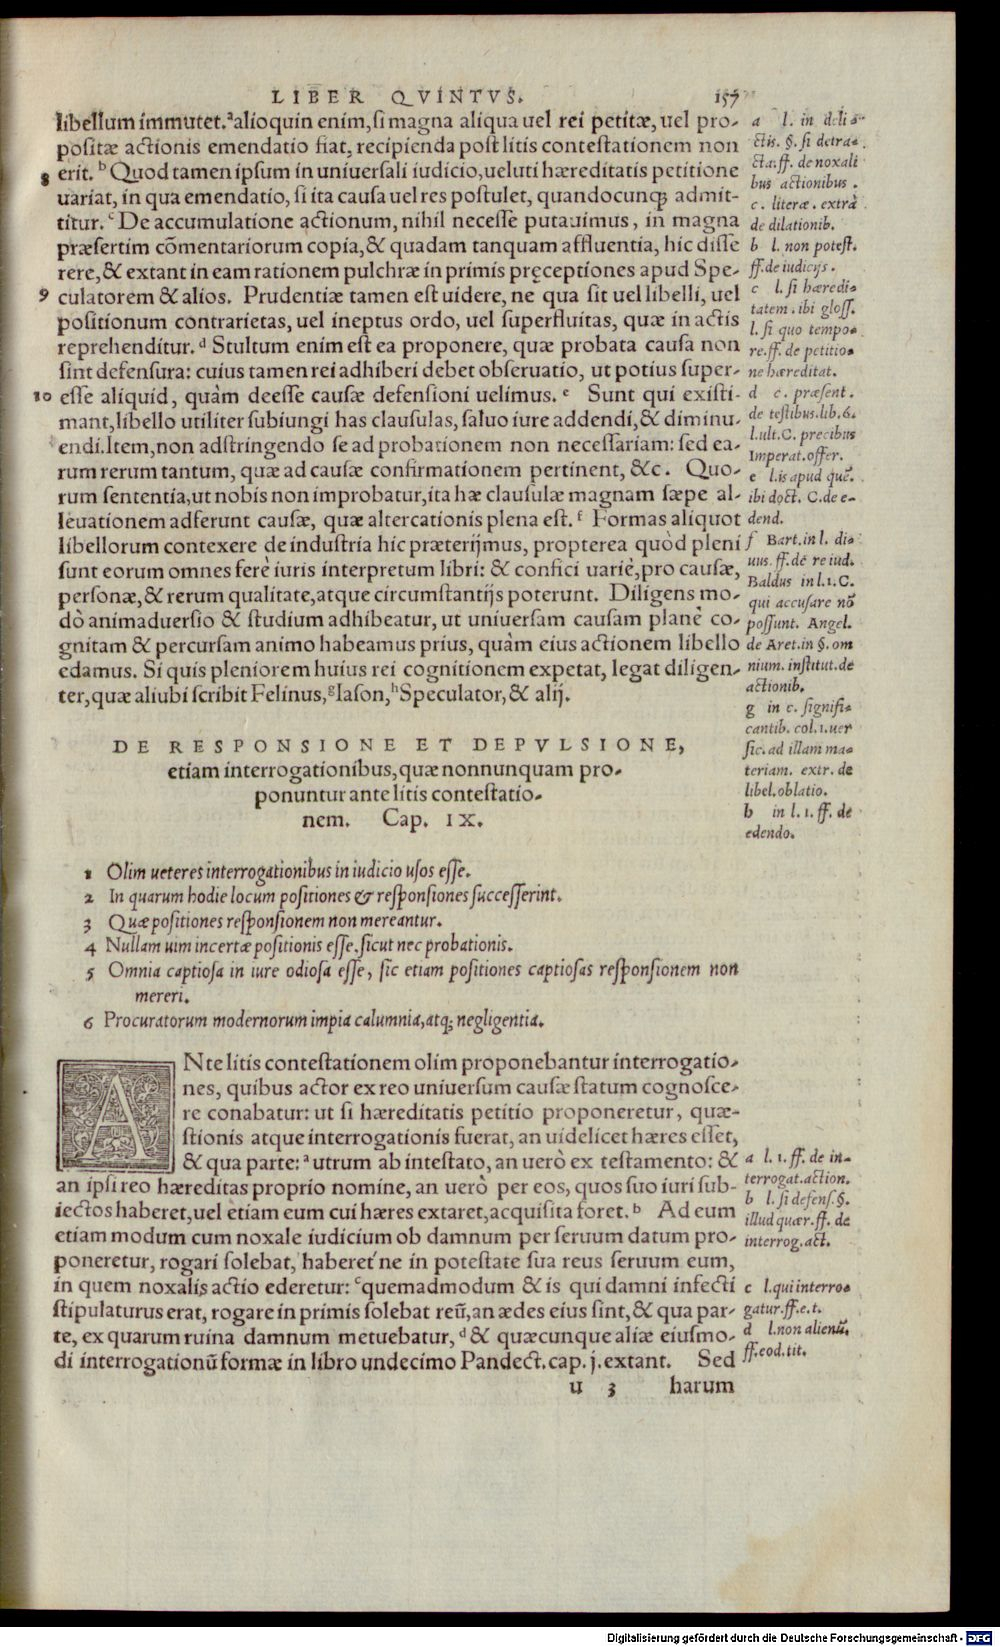 LIBER QVINTVS. 157
libellum immutet.ᵃalioquin enim,si magna aliqua uel rei petitæ,uel pro-
positæ actionis emendatio fiat, recipienda post litis contestationem non
8 erit.ᵇ Quod tamen ipsum in uniuersali iudicio,ueluti hæreditatis petitione
uariat, in qua emendatio, si ita causa uel res postulet, quandocunq; admit-
titur.ᶜ De accumulatione actionum, nihil necesse putauimus, in magna
præsertim cõmentariorum copia,& quadam tanquam affluentia, hic disse
rere,& extant in eam rationem pulchræ in primis pręceptiones apud Spe-
9 culatorem & alios. Prudentiæ tamen est uidere, ne qua sit uel libelli, uel
positionum contrarietas, uel ineptus ordo, uel superfluitas, quæ in actis
reprehenditur.ᵈ Stultum enim est ea proponere, quæ probata causa non
sint defensura: cuius tamen rei adhiberi debet obseruatio, ut potius super-
10 esse aliquid, quàm deesse causæ defensioni uelimus.ᵉ Sunt qui existi-
mant,libello utiliter subiungi has clausulas, saluo iure addendi,& diminu-
endi.Item,non adstringendo se ad probationem non necessariam: sed ea-
rum rerum tantum, quæ ad causæ confirmationem pertinent, &c. Quo-
rum sententia,ut nobis non improbatur,ita hæ clausulæ magnam sæpe al-
leuationem adferunt causæ, quæ altercationis plena est.ᶠ Formas aliquot
libellorum contexere de industria hic præterijmus, propterea quòd pleni
sunt eorum omnes ferè iuris interpretum libri: & confici uariè,pro causæ,
personæ,& rerum qualitate,atque circumstantijs poterunt. Diligens mo-
dò animaduersio & studium adhibeatur, ut uniuersam causam planè co-
gnitam & percursam animo habeamus prius, quàm eius actionem libello
edamus. Si quis pleniorem huius rei cognitionem expetat, legat diligen-
ter,quæ aliubi scribit Felinus,ᵍIason,ʰSpeculator,& alij.
a l. in deli-
ctis. §. si detra-
cta: ff. de noxali
bus actionibus.
c. literæ. extrà
de dilationib.
b l. non potest.
ff. de iudicijs.
c l. si hæredi-
tatem. ibi gloss.
l. si quo tempo-
re.ff. de petitio-
ne hæreditat.
d c. præsent.
de testibus.lib.6.
l.ult.C. precibus
Imperat.offer.
e l.is apud quẽ.
ibi doct. C.de e-
dend.
f Bart.in l. di-
uus. ff. de re iud.
Baldus in l.1.C.
qui accusare nõ
possunt. Angel.
de Aret.in §.om
nium. institut.de
actionib.
g in c. signifi-
cantib. col.1.uer
sic.ad illam ma-
teriam. extr. de
libel.oblatio.
h in l.1.ff. de
edendo.
DE RESPONSIONE ET DEPVLSIONE,
etiam interrogationibus,quæ nonnunquam pro-
ponuntur ante litis contestatio-
nem. Cap. IX.
1 Olim ueteres interrogationibus in iudicio usos esse.
2 In quarum hodie locum positiones & responsiones successerint.
3 Quæ positiones responsionem non mereantur.
4 Nullam uim incertæ positionis esse, sicut nec probationis.
5 Omnia captiosa in iure odiosa esse, sic etiam positiones captiosas responsionem non
mereri.
6 Procuratorum modernorum impia calumnia,atq; negligentia.
ANte litis contestationem olim proponebantur interrogatio-
nes, quibus actor ex reo uniuersum causæ statum cognosce-
re conabatur: ut si hæreditatis petitio proponeretur, quæ-
stionis atque interrogationis fuerat, an uidelicet hæres esset,
& qua parte:ᵃ utrum ab intestato, an uerò ex testamento: &
an ipsi reo hæreditas proprio nomine, an uerò per eos, quos suo iuri sub-
iectos haberet,uel etiam eum cui hæres extaret,acquisita foret.ᵇ Ad eum
etiam modum cum noxale iudicium ob damnum per seruum datum pro-
poneretur, rogari solebat, haberet'ne in potestate sua reus seruum eum,
in quem noxalis actio ederetur:ᶜquemadmodum & is qui damni infecti
stipulaturus erat, rogare in primis solebat reũ,an ædes eius sint,& qua par-
te, ex quarum ruina damnum metuebatur,ᵈ& quæcunque aliæ eiusmo-
di interrogationũ formæ in libro undecimo Pandect.cap.j.extant. Sed
a l. 1. ff. de in-
terrogat.action.
b l. si defens.§.
illud quær. ff. de
interrog.act.
c l.qui interro-
gatur.ff.e.t.
d l.non alienũ.
ff.eod.tit.
u 3 harum
Digitalisierung gefördert durch die Deutsche Forschungsgemeinschaft - DFG